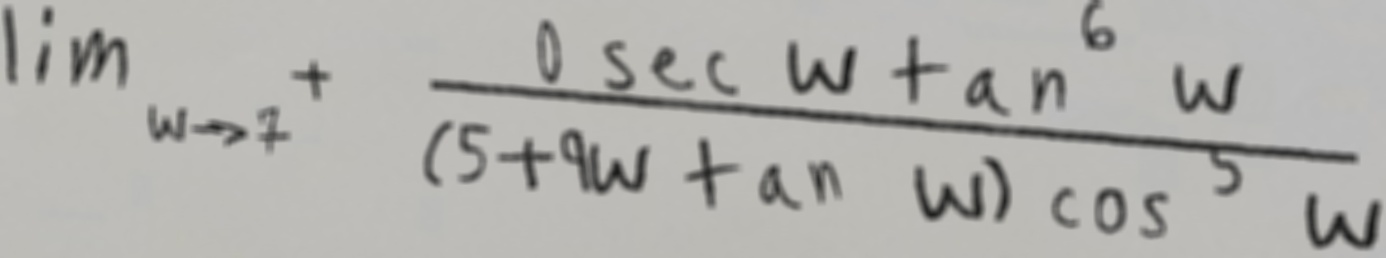 lim w→7⁺ 0 sec w tan⁶ w / (5+9w tan w) cos⁵ w